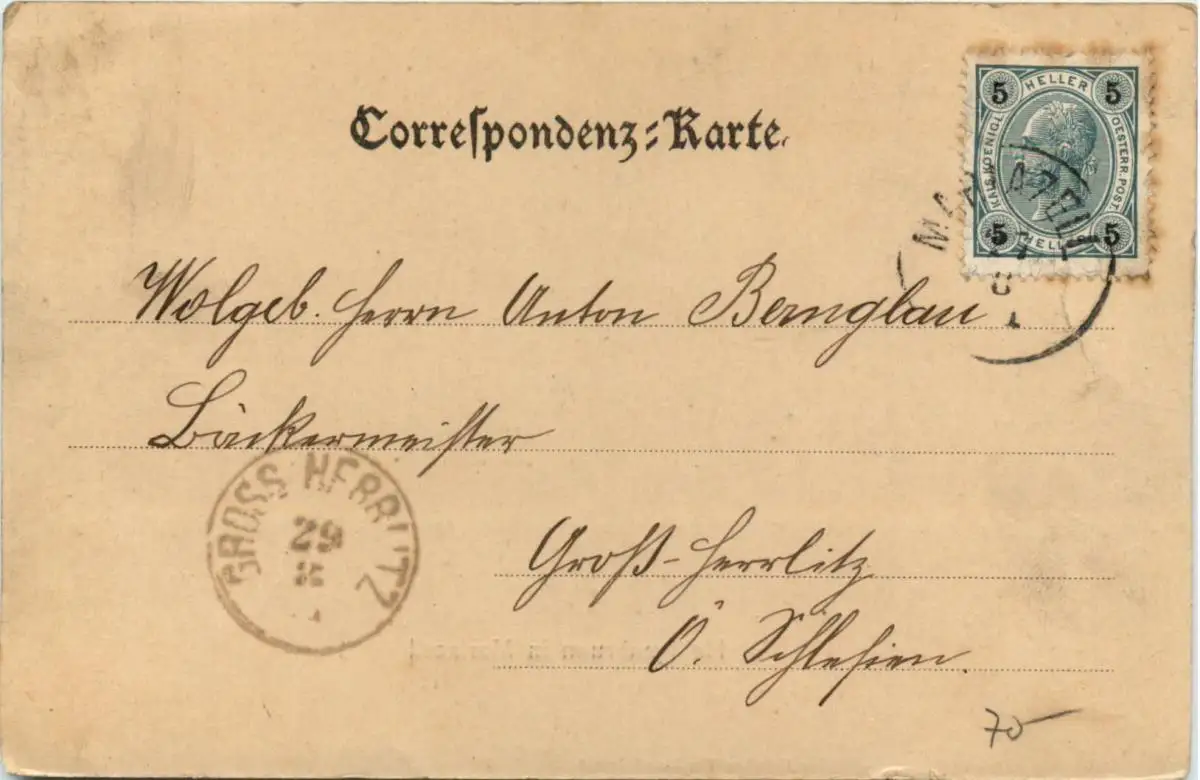 Correspondenz-Karte.
5 HELLER 5
KAIS. KOENIGL. OESTERR. POST.
5 HELLER 5
Wolgeb. Herrn Anton Bernglau
Bäckermeister
GROSS HERRLITZ
29
Groß-Herrlitz
Ö. Schlesien.
70